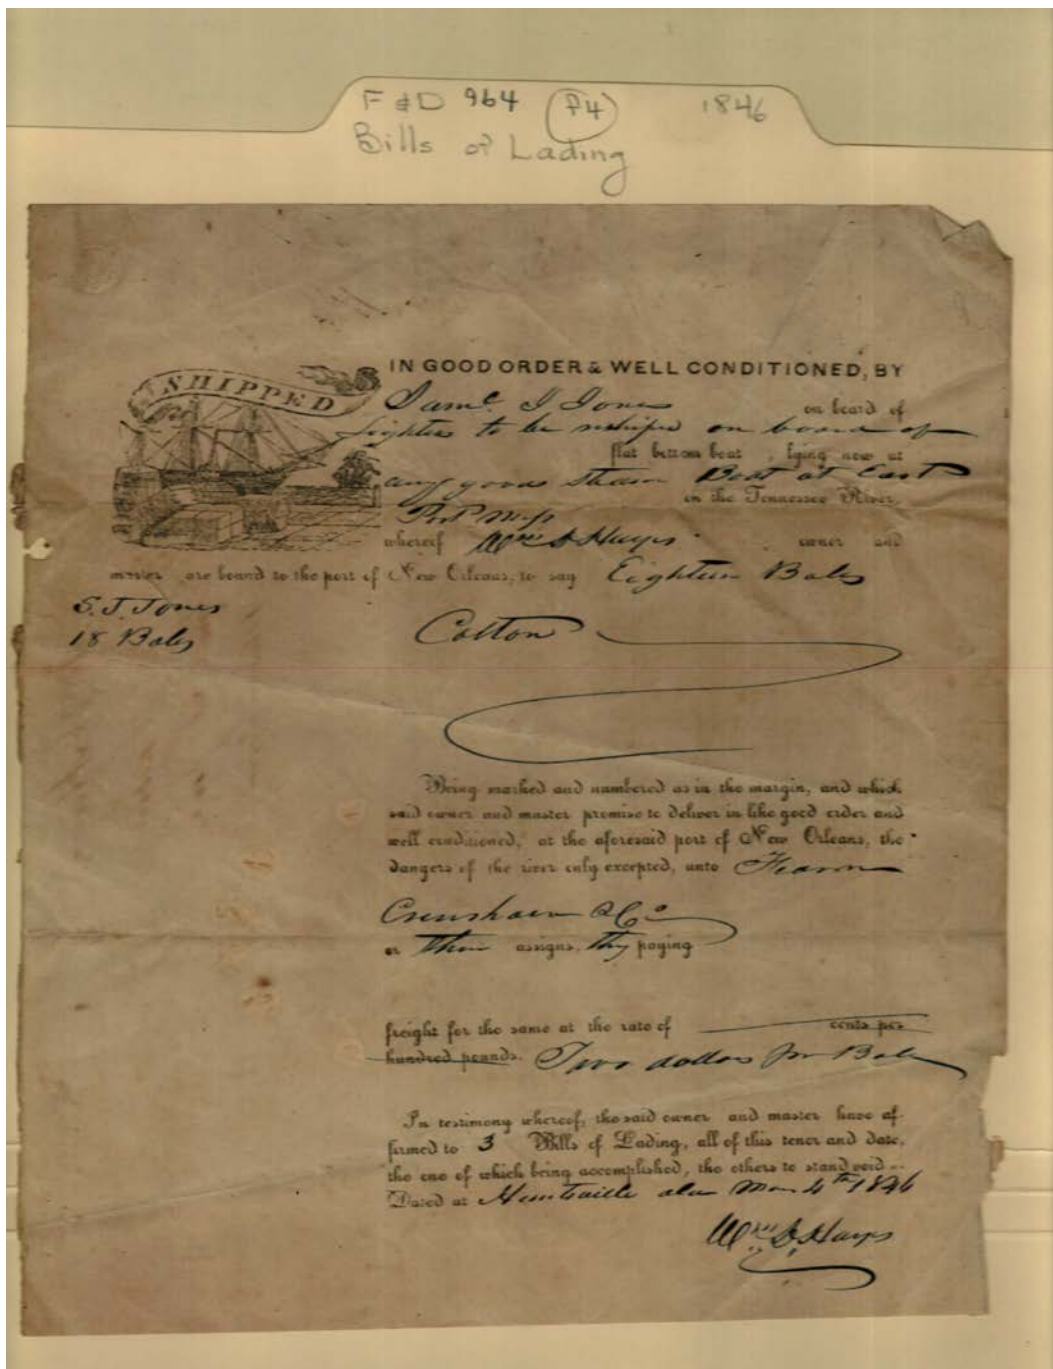 F & D 964 (P4) 1846
Bills of Lading
SHIPPED
IN GOOD ORDER & WELL CONDITIONED, BY
Saml. J Jones on board of
lighter to be reshiped on board of
flat bottom boat, lying now at
any good Steam Boat at East
in the Tennessee River,
Port Miss
whereof Wm S Hays owner and
master are bound to the port of New Orleans, to say Eighteen Bales
S. J. Jones
18 Bales
Cotton
Being marked and numbered as in the margin, and which
said owner and master promise to deliver in like good order and
well conditioned, at the aforesaid port of New Orleans, the
dangers of the river only excepted, unto Fearn
Crenshaw & Co
or their assigns, they paying
freight for the same at the rate of cents per
hundred pounds. Two dollars pr Bale
In testimony whereof, the said owner and master have af-
firmed to 3 Bills of Lading, all of this tenor and date,
the one of which being accomplished, the others to stand void.
Dated at Huntsville ala Mar 4th 1846
Wm S Hays